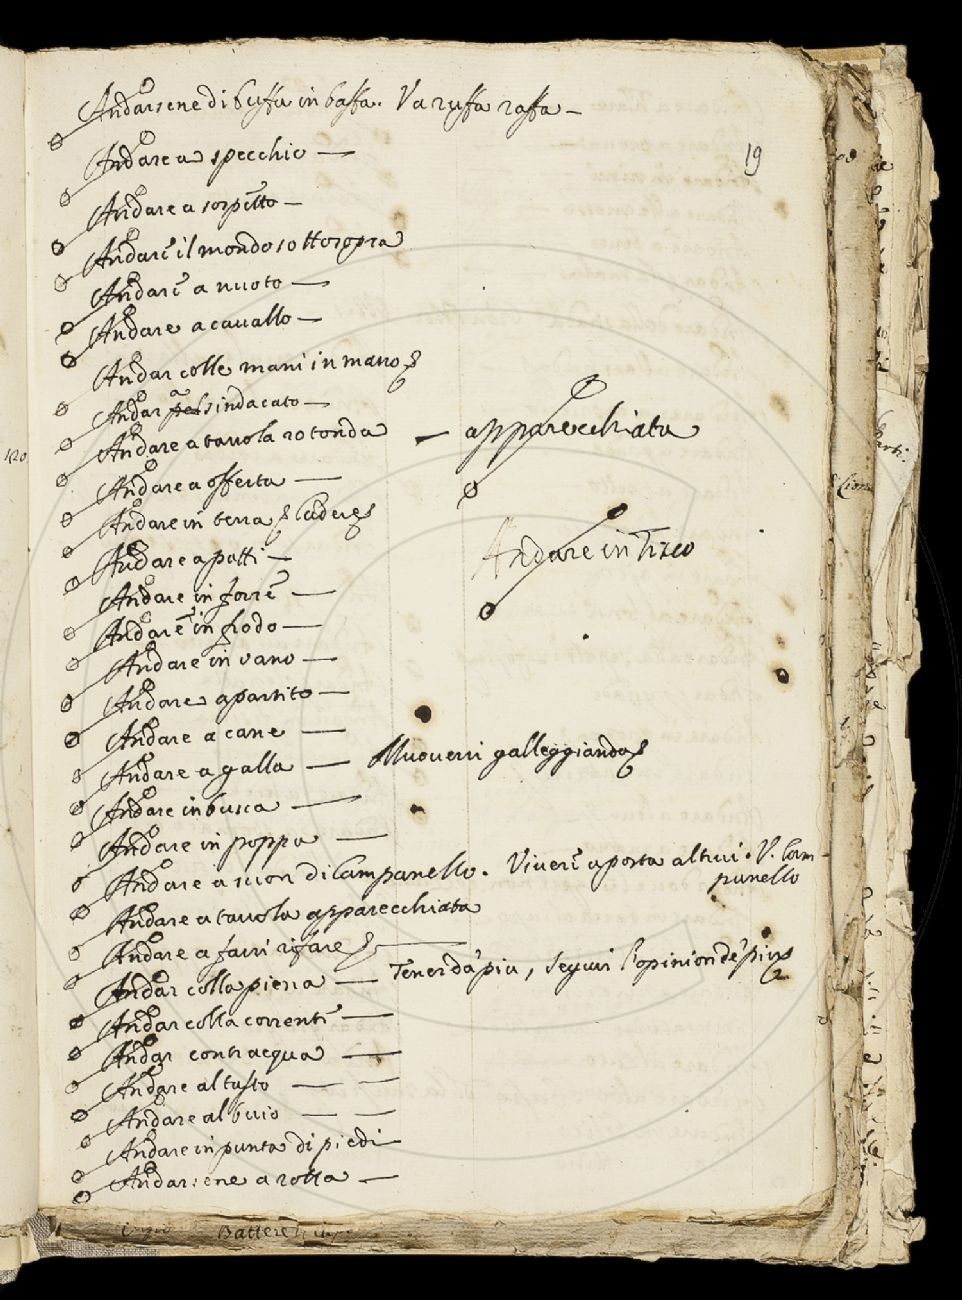 Andarsene di buffa in baffa. V a ruffa raffa —
19
Andare a specchio —
Andare a sospetto —
Andare il mondo sottosopra
Andare a nuoto —
Andare a cavallo —
Andar colle mani in mano
Andar a sindacato —
Andare a tavola rotonda — apparecchiata
Andare a offerta —
Andare in terra
Andare in Tirco
Andare a patti —
Andare in forse —
Andare in frodo —
Andare in vano —
Andare a partito —
Andare a cane —
Andare a galla — Muoversi galleggiando
Andare in busca —
Andare in poppa —
Andare a suon di Campanello. Vivere a posta altrui. V. Cam-
panello
Andare a tavola apparecchiata
Andare a farsi rifare
Andar colla piena — Tener da' piu, seguir l'opinion de' piu
Andar colla corrente —
Andar contracqua —
Andare al tasto — —
Andare al buio — —
Andare in punta di piedi
Andarsene a rotta —
420
Battere